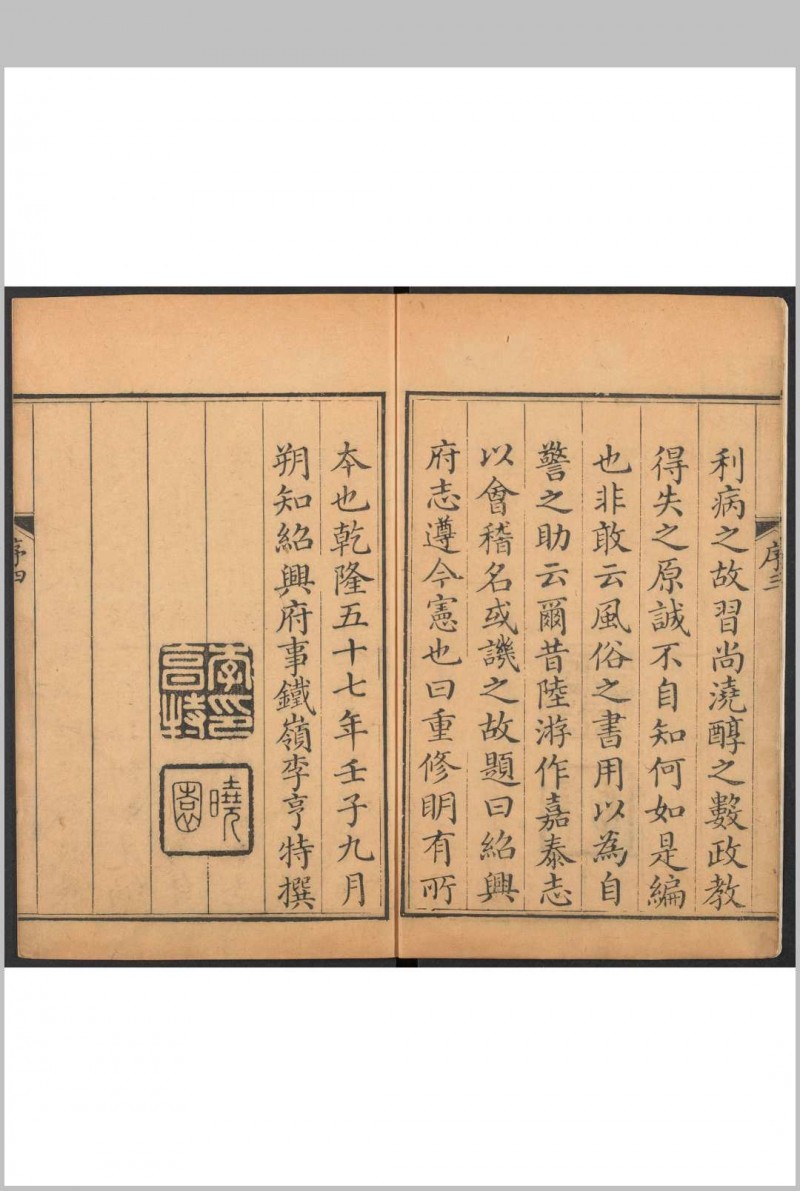 序三
利病之故習尚澆醇之數政教
得失之原誠不自知何如是編
也非敢云風俗之書用以為自
警之助云爾昔陸游作嘉泰志
以會稽名或譏之故題曰紹興
府志遵今憲也曰重修明有所
本也乾隆五十七年壬子九月
朔知紹興府事鐵嶺李亨特撰
李印亨特
曉園
序四